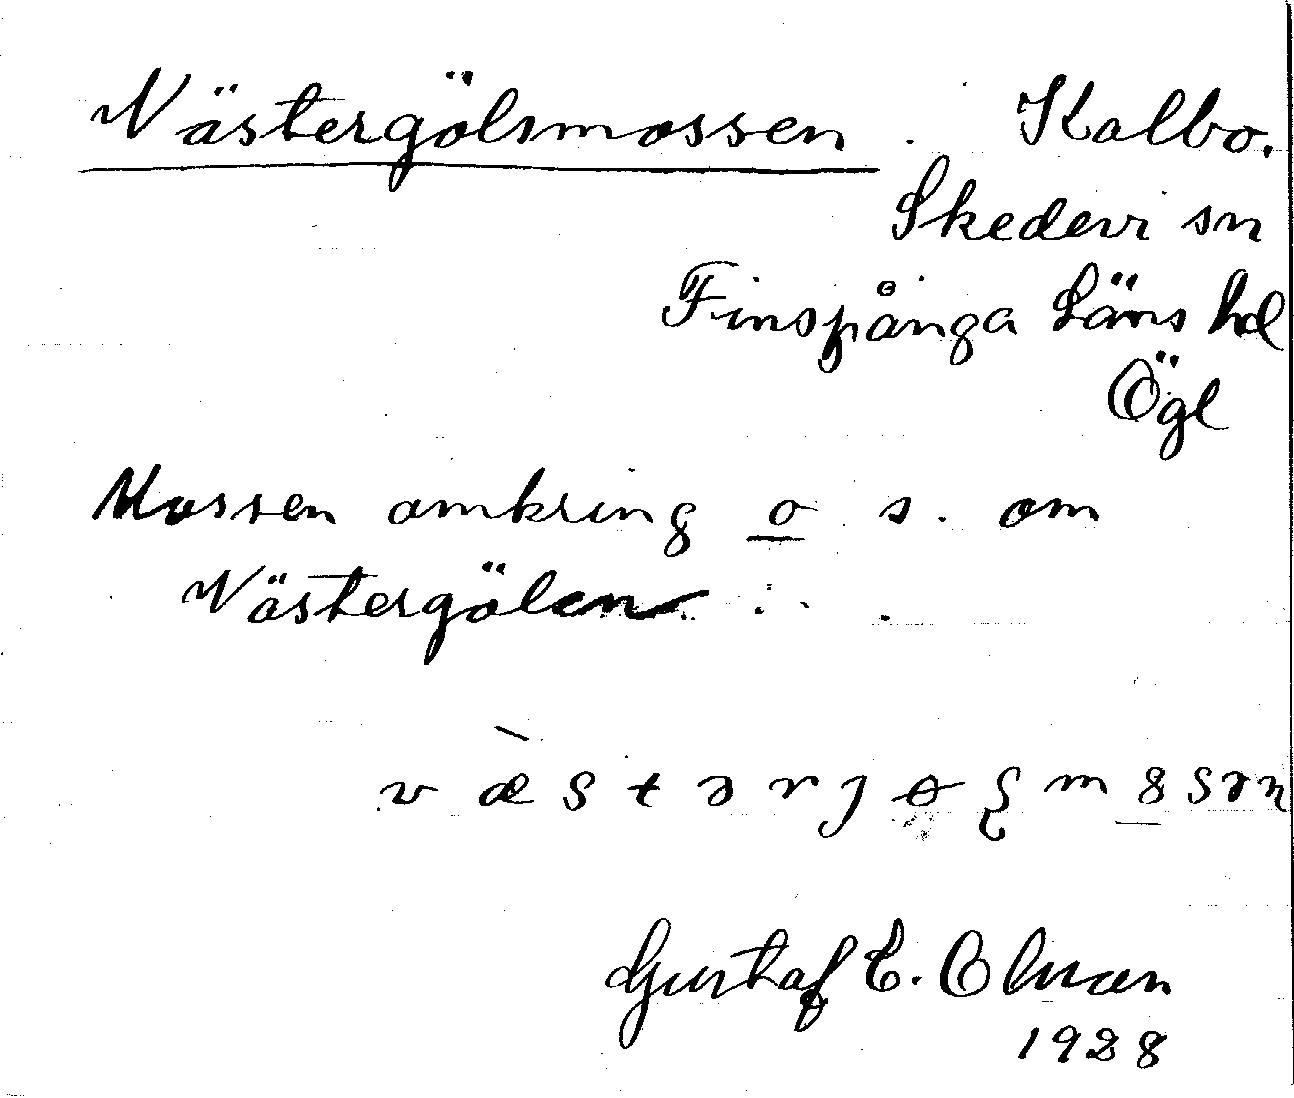 Västergölsmossen. Kalbo.
Skedevi sn
Finspånga Läns hd
Ögl
Mossen omkring o s. om
Västergölen
Gustaf E. Olsson
1928